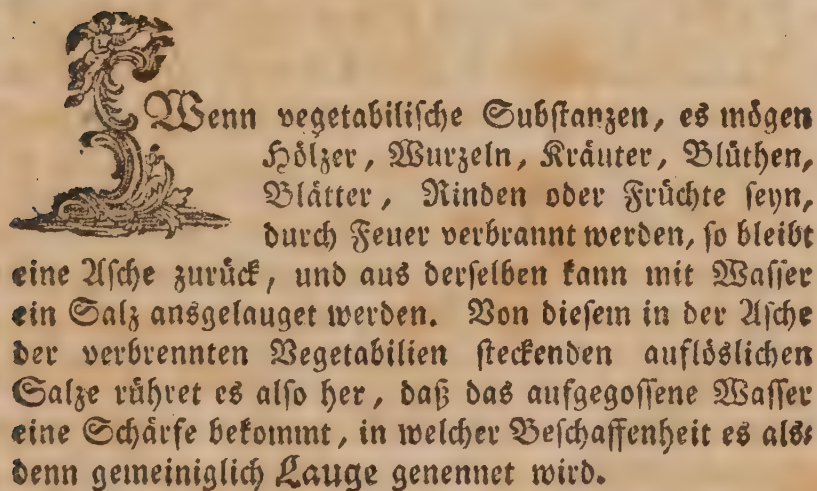 Wenn vegetabiliſche Subſtanzen, es mögen
Hölzer, Wurzeln, Kräuter, Blüthen,
Blätter, Rinden oder Früchte ſeyn,
durch Feuer verbrannt werden, ſo bleibt
eine Aſche zurück, und aus derſelben kann mit Waſſer
ein Salz ansgelauget werden. Von dieſem in der Aſche
der verbrennten Vegetabilien ſteckenden auflöslichen
Salze rühret es alſo her, daß das aufgegoſſene Waſſer
eine Schärfe bekommt, in welcher Beſchaffenheit es als⸗
denn gemeiniglich Lauge genennet wird.